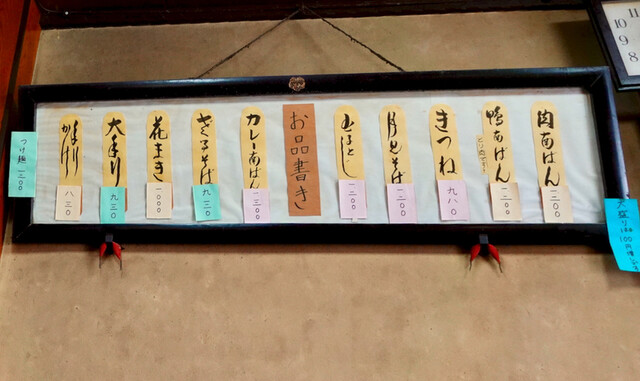 肉なんばん
一二〇〇
鴨なんばん
一二〇〇
きつね
九八〇
月見そば
一二〇〇
一二〇〇
お品書き
カレーなんばん
一三〇〇
ざるそば
九三〇
花まき
一〇〇〇
大もり
九三〇
もり
かけ
八三〇
つけ麺
大盛り
100円増
11
10
9
8